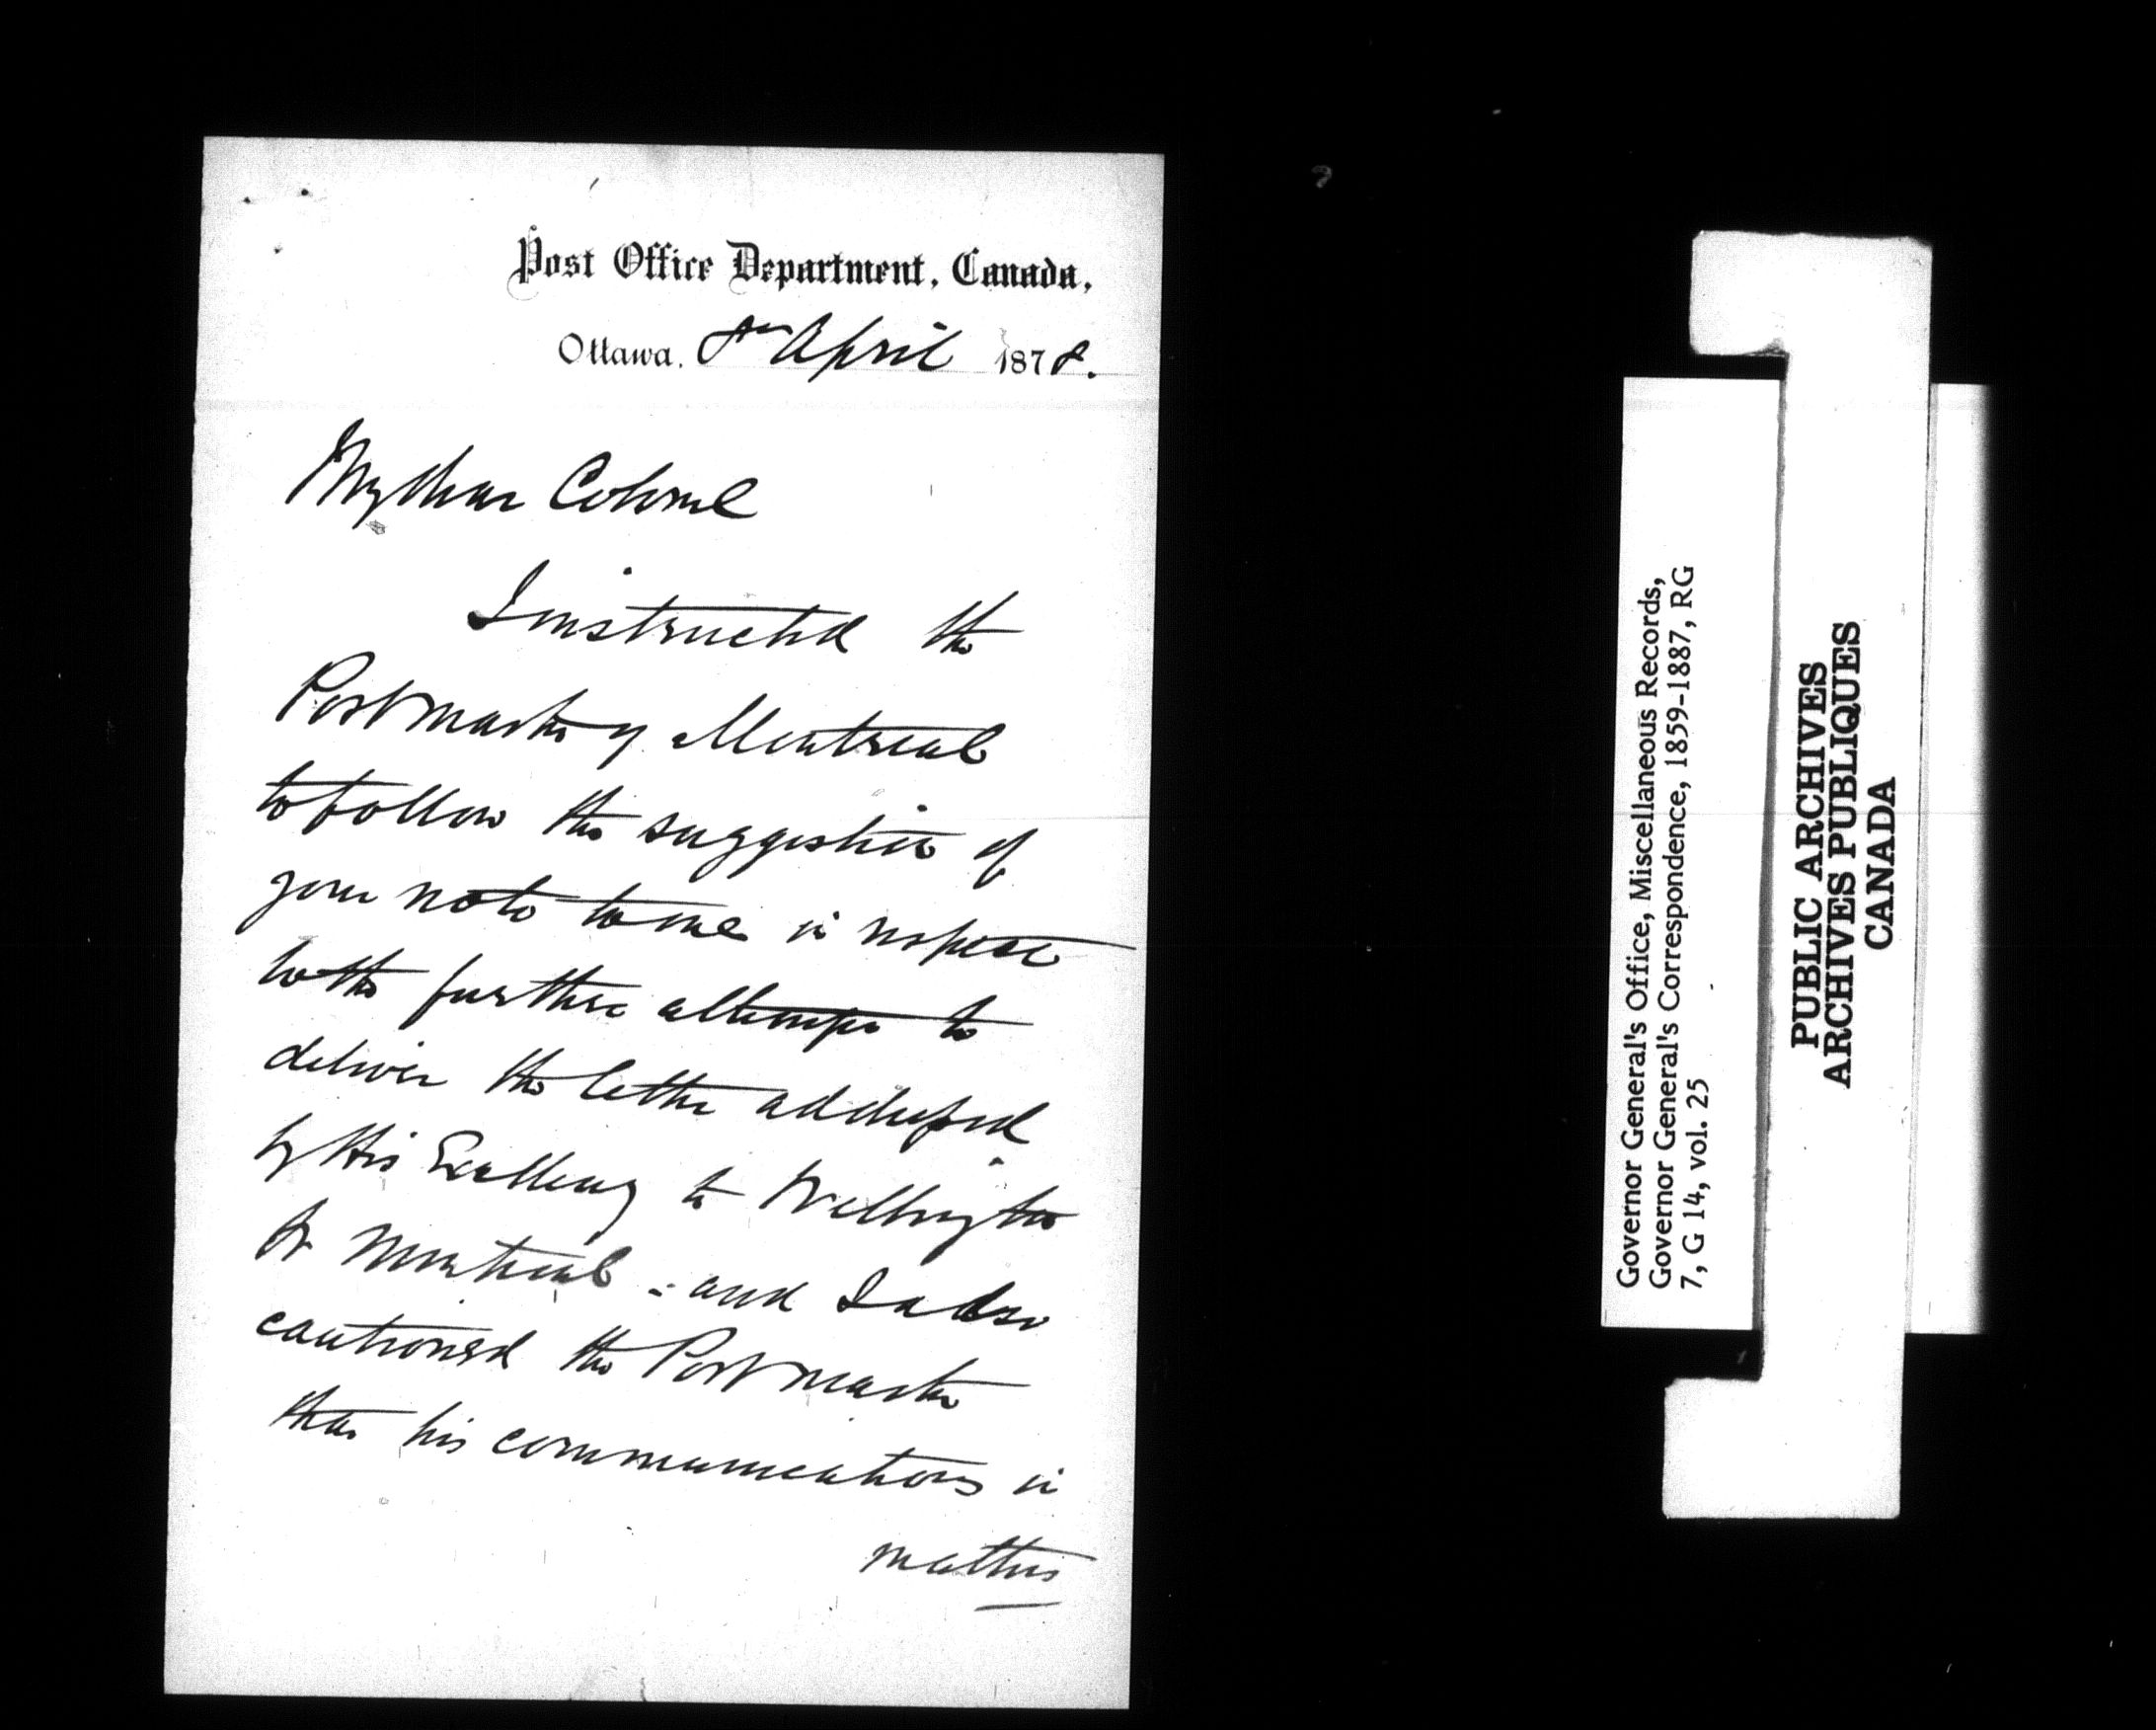 Post Office Department, Canada,
Ottawa, 8th April 1878.
My dear Colonel
I instructed the
Postmaster of Montreal
to follow the suggestion of
your note to me in respect
to the further attempt to
deliver the letter addressed
by His Excellency to Wellington
St Montreal - and I also
cautioned the Postmaster
that his communications in
matters
Governor General's Office, Miscellaneous Records,
Governor General's Correspondence, 1859-1887, RG
7, G 14, vol. 25
PUBLIC ARCHIVES
ARCHIVES PUBLIQUES
CANADA